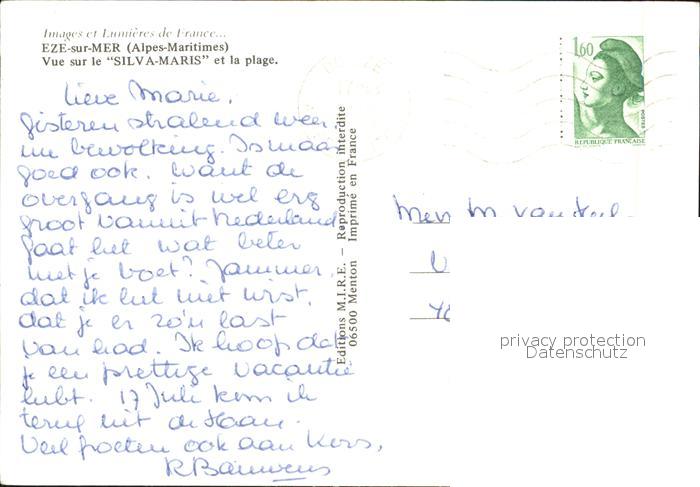 Images et Lumières de France...
EZE-sur-MER (Alpes-Maritimes)
Vue sur le "SILVA-MARIS" et la plage.
Lieve Marie,
Gisteren stralend weer,
nu bewolking. Is maar
goed ook. Want de
overgang is wel erg
groot vanuit Nederland
Gaat het wat beter
met je voet? Jammer,
dat ik het niet wist,
dat je er zo'n last
van had. Ik hoop dat
je een prettige vacantie
hebt. 17 Juli kom ik
terug uit de Haan.
Veel groeten ook aan Kors,
R Bauwens
Editions M.I.R.E. – Reproduction interdite
06500 Menton Imprimé en France
1,60
REPUBLIQUE FRANÇAISE
POSTES
M van
privacy protection
Datenschutz